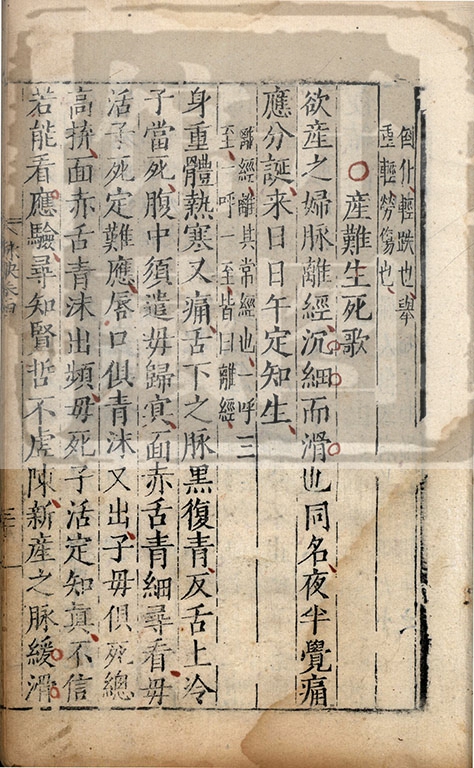 倒仆輕跌也舉
重輕勞傷也
○產難生死歌
欲産之婦脉離經沉細而滑也同名夜半覺痛
應分誕來日日午定知生
離經離其常經也一呼三
至一呼一至皆曰離經
身重體熱寒又痛舌下之脉黑復青反舌上冷
子當死腹中須遣毋歸真面赤舌青細尋看毋
活子死定難應唇口俱青沫又出子毋俱死總
高拚面赤舌青沫出頻毋死子活定知真不信
若能看應驗尋知賢哲不虛陳新産之脉緩滑